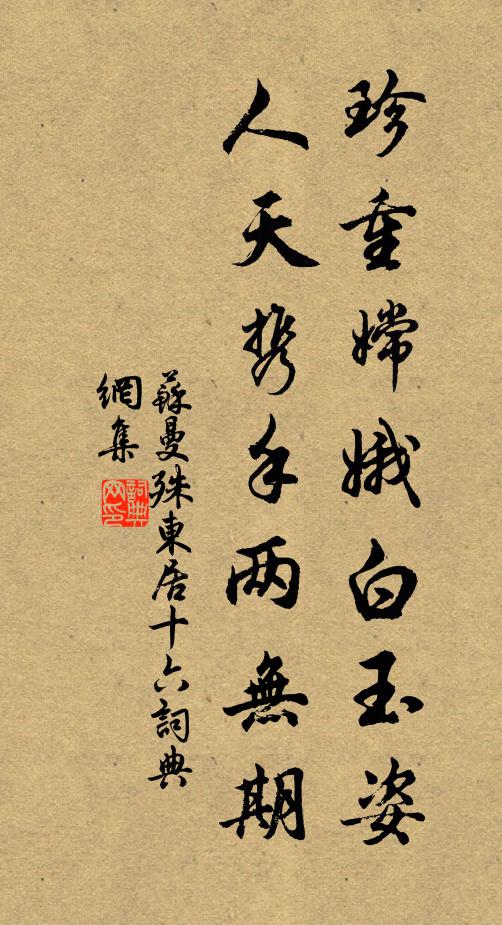 珍重嫦娥白玉姿
人天携手两無期
蘇曼殊東居十六詞典
網集
詞典
网印